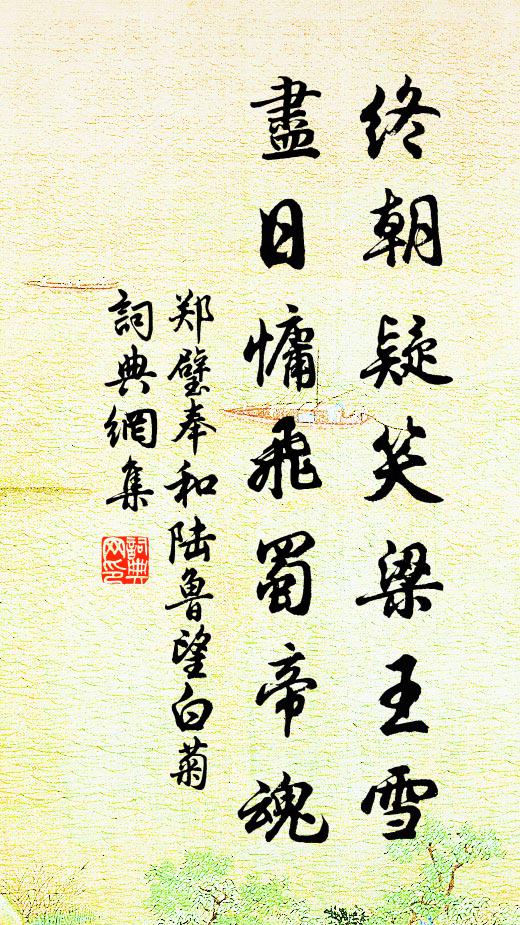 終朝疑笑梁王雪
盡日慵飛蜀帝魂
郑璧奉和陆鲁望白菊
詞典網集
詞典网印